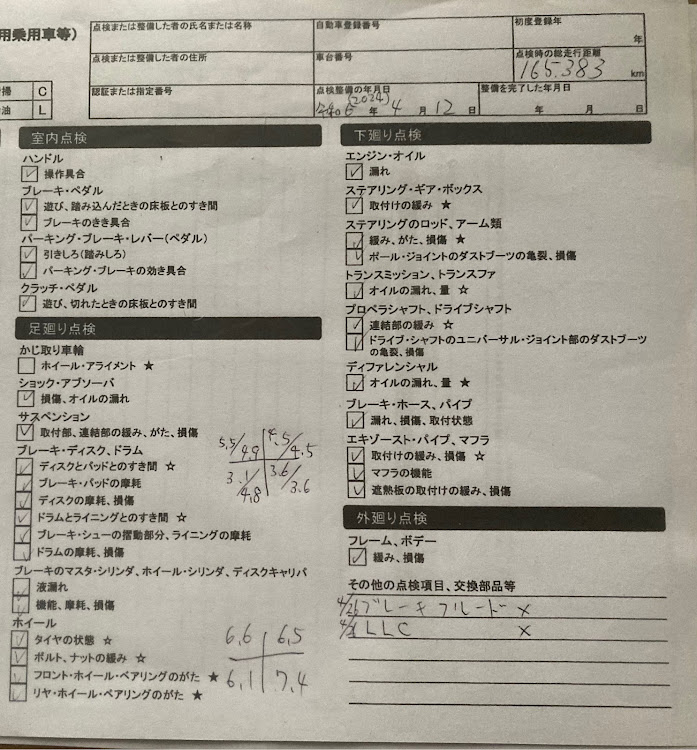 用乗用車等)
掃 C
油 L
点検または整備した者の氏名または名称
自動車登録番号
初度登録年
年
点検または整備した者の住所
車台番号
点検時の総走行距離
165.383 km
認証または指定番号
点検整備の年月日
(2024)
令和6年 4月 12日
整備を完了した年月日
年 月 日
室内点検
ハンドル
操作具合
ブレーキ・ペダル
遊び、踏み込んだときの床板とのすき間
ブレーキのきき具合
パーキング・ブレーキ・レバー(ペダル)
引きしろ(踏みしろ)
パーキング・ブレーキの効き具合
クラッチ・ペダル
遊び、切れたときの床板とのすき間
足廻り点検
かじ取り車輪
ホイール・アライメント ★
ショック・アブソーバ
損傷、オイルの漏れ
サスペンション
取付部、連結部の緩み、がた、損傷
ブレーキ・ディスク、ドラム
ディスクとパッドとのすき間 ☆
ブレーキ・パッドの摩耗
ディスクの摩耗、損傷
ドラムとライニングとのすき間 ☆
ブレーキ・シューの摺動部分、ライニングの摩耗
ドラムの摩耗、損傷
5.5/4.9 4.5/4.5
3.1/4.8 3.6/3.6
ブレーキのマスタ・シリンダ、ホイール・シリンダ、ディスクキャリパ
液漏れ
機能、摩耗、損傷
ホイール
タイヤの状態 ☆
ボルト、ナットの緩み ☆
フロント・ホイール・ベアリングのがた ★
リヤ・ホイール・ベアリングのがた ★
6.6 6.5
6.1 7.4
下廻り点検
エンジン・オイル
漏れ
ステアリング・ギア・ボックス
取付けの緩み ★
ステアリングのロッド、アーム類
緩み、がた、損傷 ★
ボール・ジョイントのダストブーツの亀裂、損傷
トランスミッション、トランスファ
オイルの漏れ、量 ☆
プロペラシャフト、ドライブシャフト
連結部の緩み ☆
ドライブ・シャフトのユニバーサル・ジョイント部のダストブーツ
の亀裂、損傷
ディファレンシャル
オイルの漏れ、量 ★
ブレーキ・ホース、パイプ
漏れ、損傷、取付状態
エキゾースト・パイプ、マフラ
取付けの緩み、損傷 ☆
マフラの機能
遮熱板の取付けの緩み、損傷
外廻り点検
フレーム、ボデー
緩み、損傷
その他の点検項目、交換部品等
4/26 ブレーキフルード ×
LLC ×